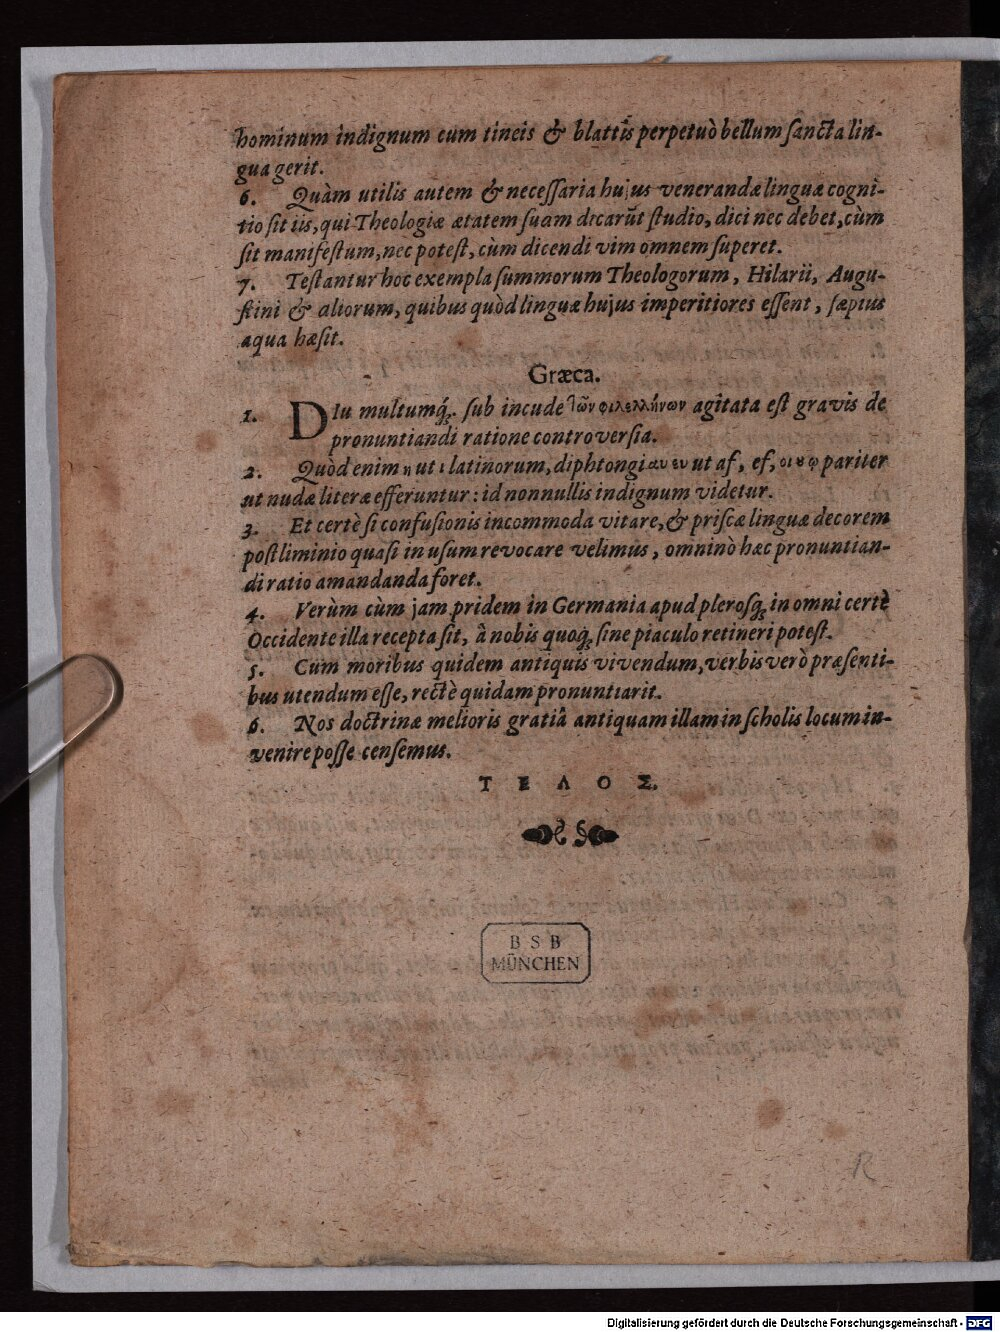 hominum indignum cum tineis & blattis perpetuò bellum ſancta lin-
gua gerit.
6. Quàm utilis autem & neceſſaria hujus venerandæ linguæ cogni-
tio ſit iis, qui Theologiæ ætatem ſuam dicarūt ſtudio, dici nec debet, cùm
ſit manifeſtum, nec poteſt, cùm dicendi vim omnem ſuperet.
7. Teſtantur hoc exempla ſummorum Theologorum, Hilarii, Augu-
ſtini & aliorum, quibus quòd linguæ hujus imperitiores eſſent, ſæpius
aqua hæſit.
Græca.
1. DIu multumq́; ſub incude τῶν φιλελλήνων agitata eſt gravis de
pronuntiandi ratione controverſia.
2. Quòd enim η ut ι latinorum, diphtongi αυ ευ ut af, ef, οι pariter
ut nudæ literæ efferuntur: id nonnullis indignum videtur.
3. Et certè ſi confuſionis incommoda vitare, & priſcæ linguæ decorem
poſtliminio quaſi in uſum revocare velimus, omninò hæc pronuntian-
di ratio amandanda foret.
4. Verùm cùm jam pridem in Germania apud pleroſq́; in omni certè
Occidente illa recepta ſit, â nobis quoq́; ſine piaculo retineri poteſt.
5. Cum moribus quidem antiquis vivendum, verbis verò præſenti-
bus utendum eſſe, rectè quidam pronuntiarit.
6. Nos doctrinæ melioris gratiâ antiquam illam in ſcholis locum in-
venire poſſe cenſemus.
ΤΕΛΟΣ.
BSB
MÜNCHEN
Digitalisierung gefördert durch die Deutsche Forschungsgemeinschaft - DFG